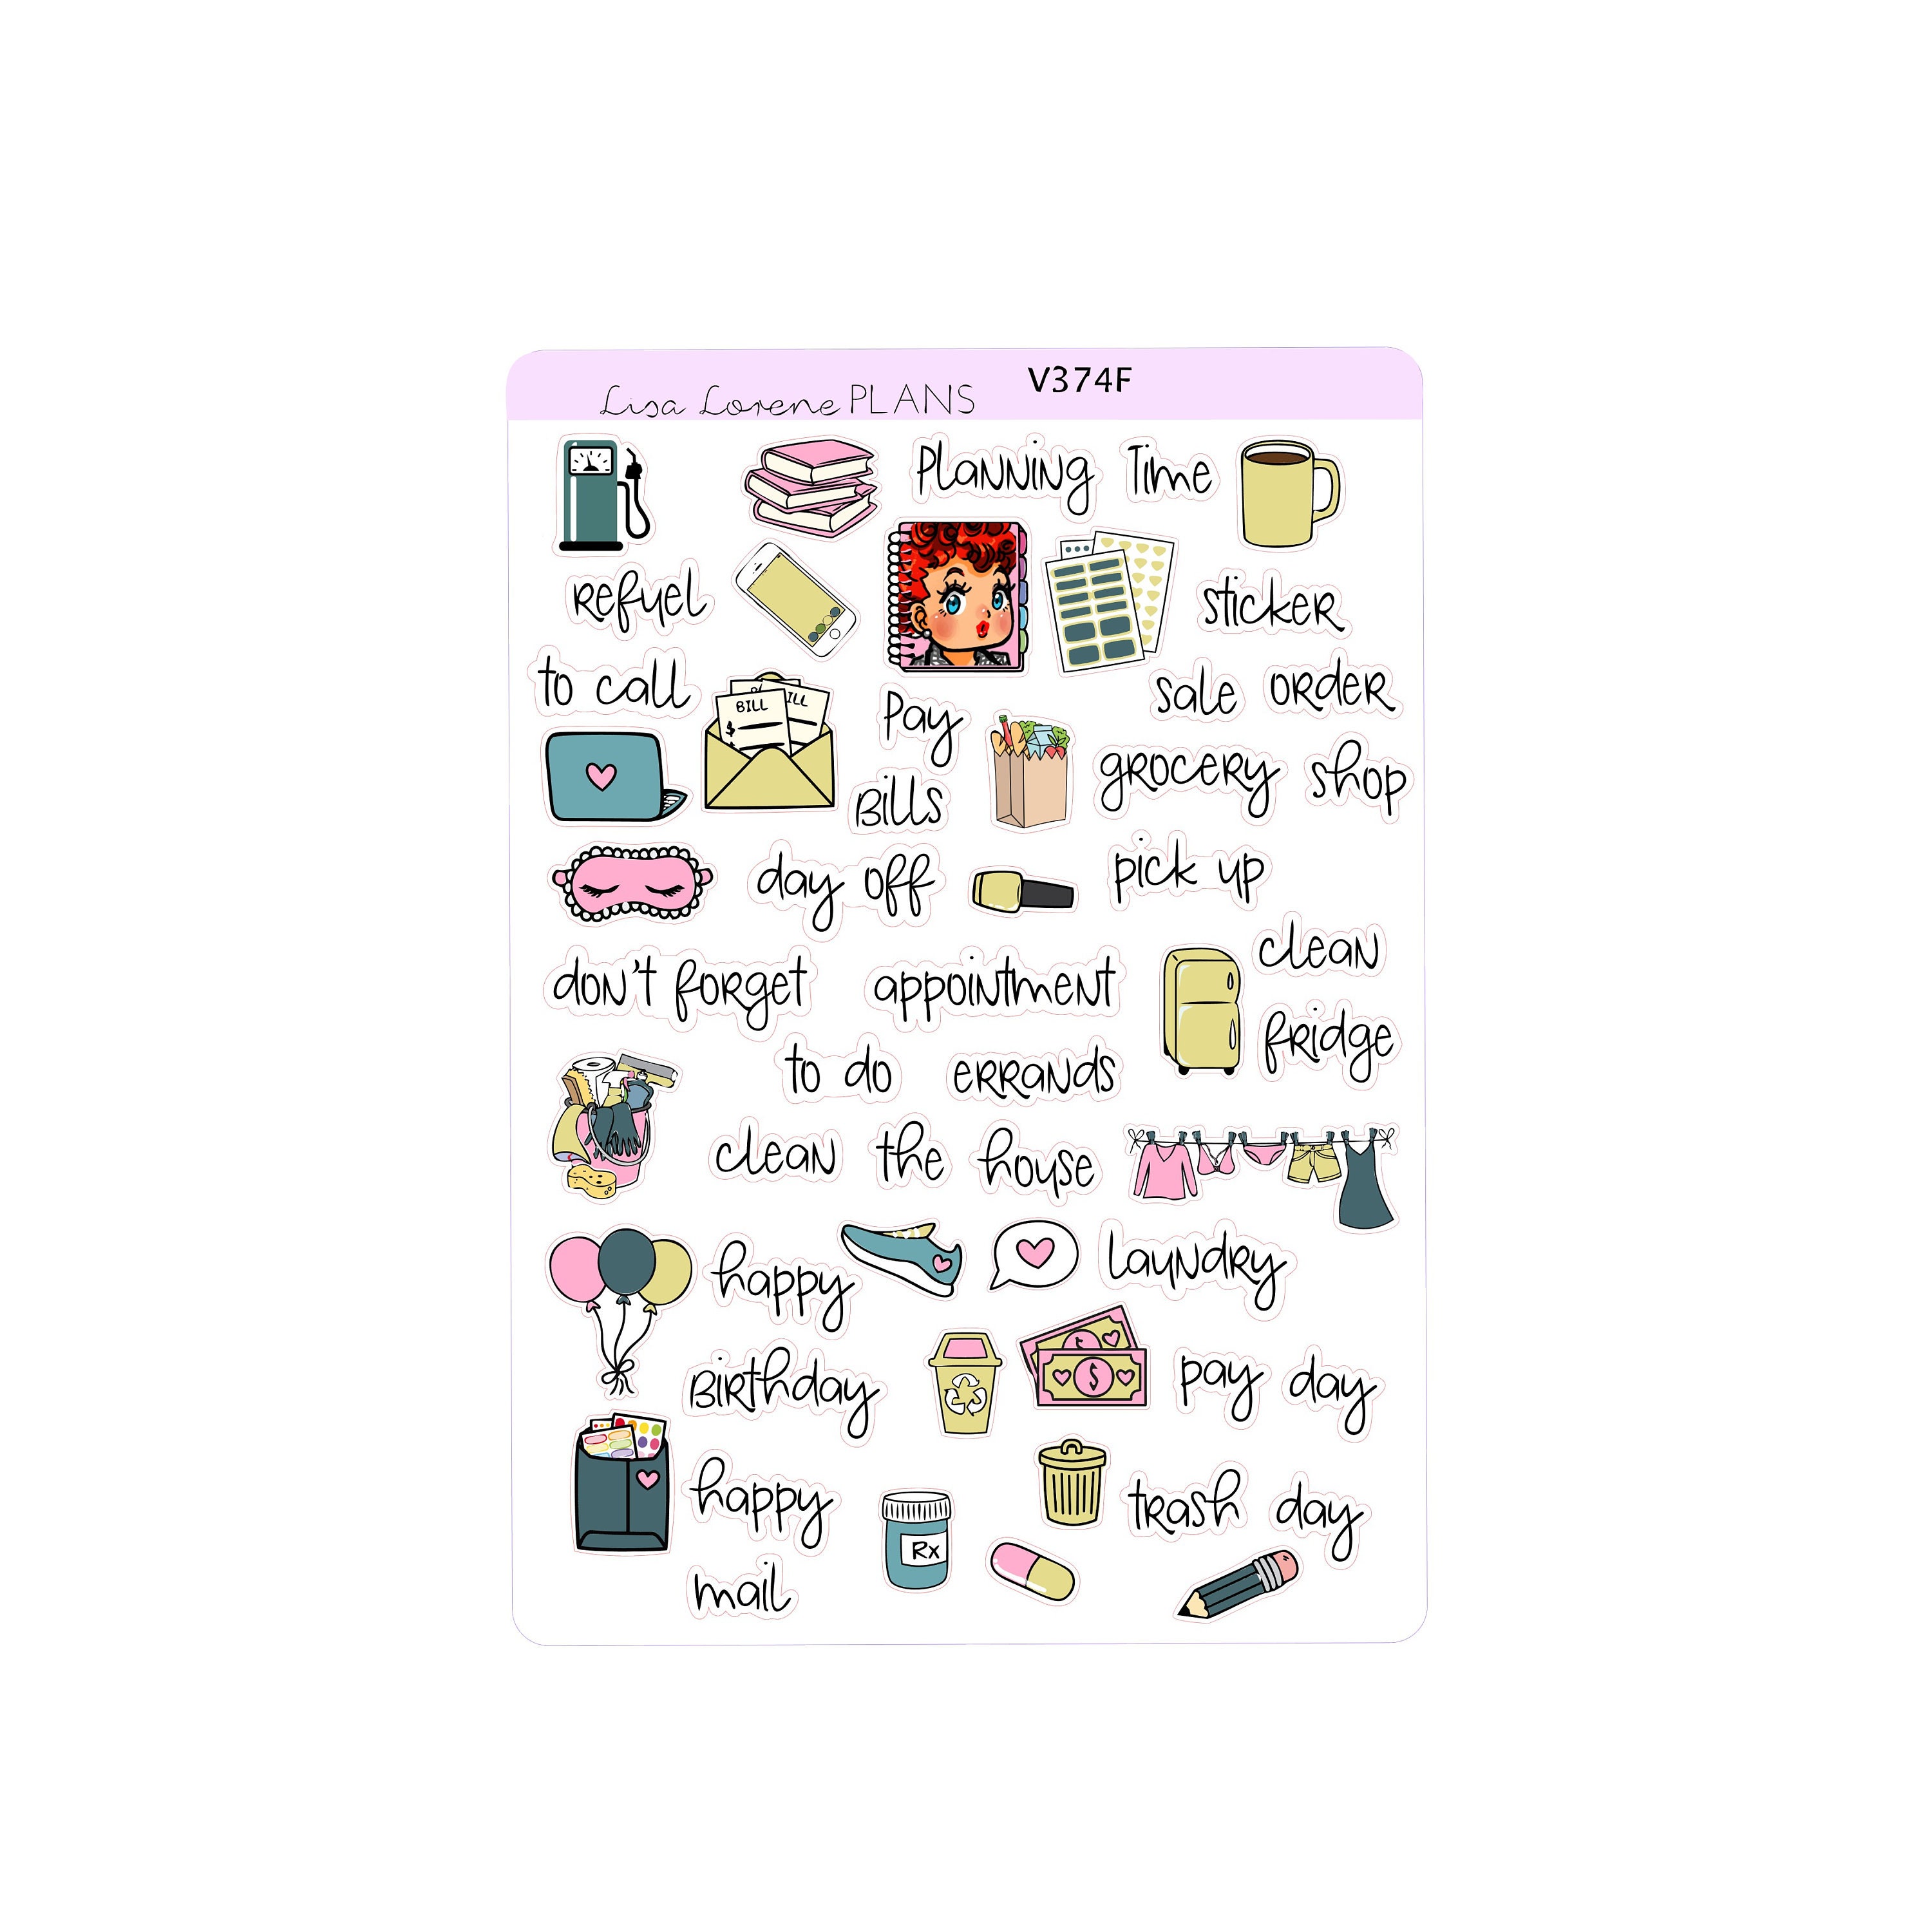 Lisa Lorene PLANS V374F
Planning Time
refuel
sticker
to call
sale order
BILL
BILL
$
Pay
Bills
grocery shop
day off
pick up
don't forget
appointment
clean
fridge
to do
errands
clean the house
happy
Laundry
Birthday
$
pay day
happy
trash day
Rx
mail